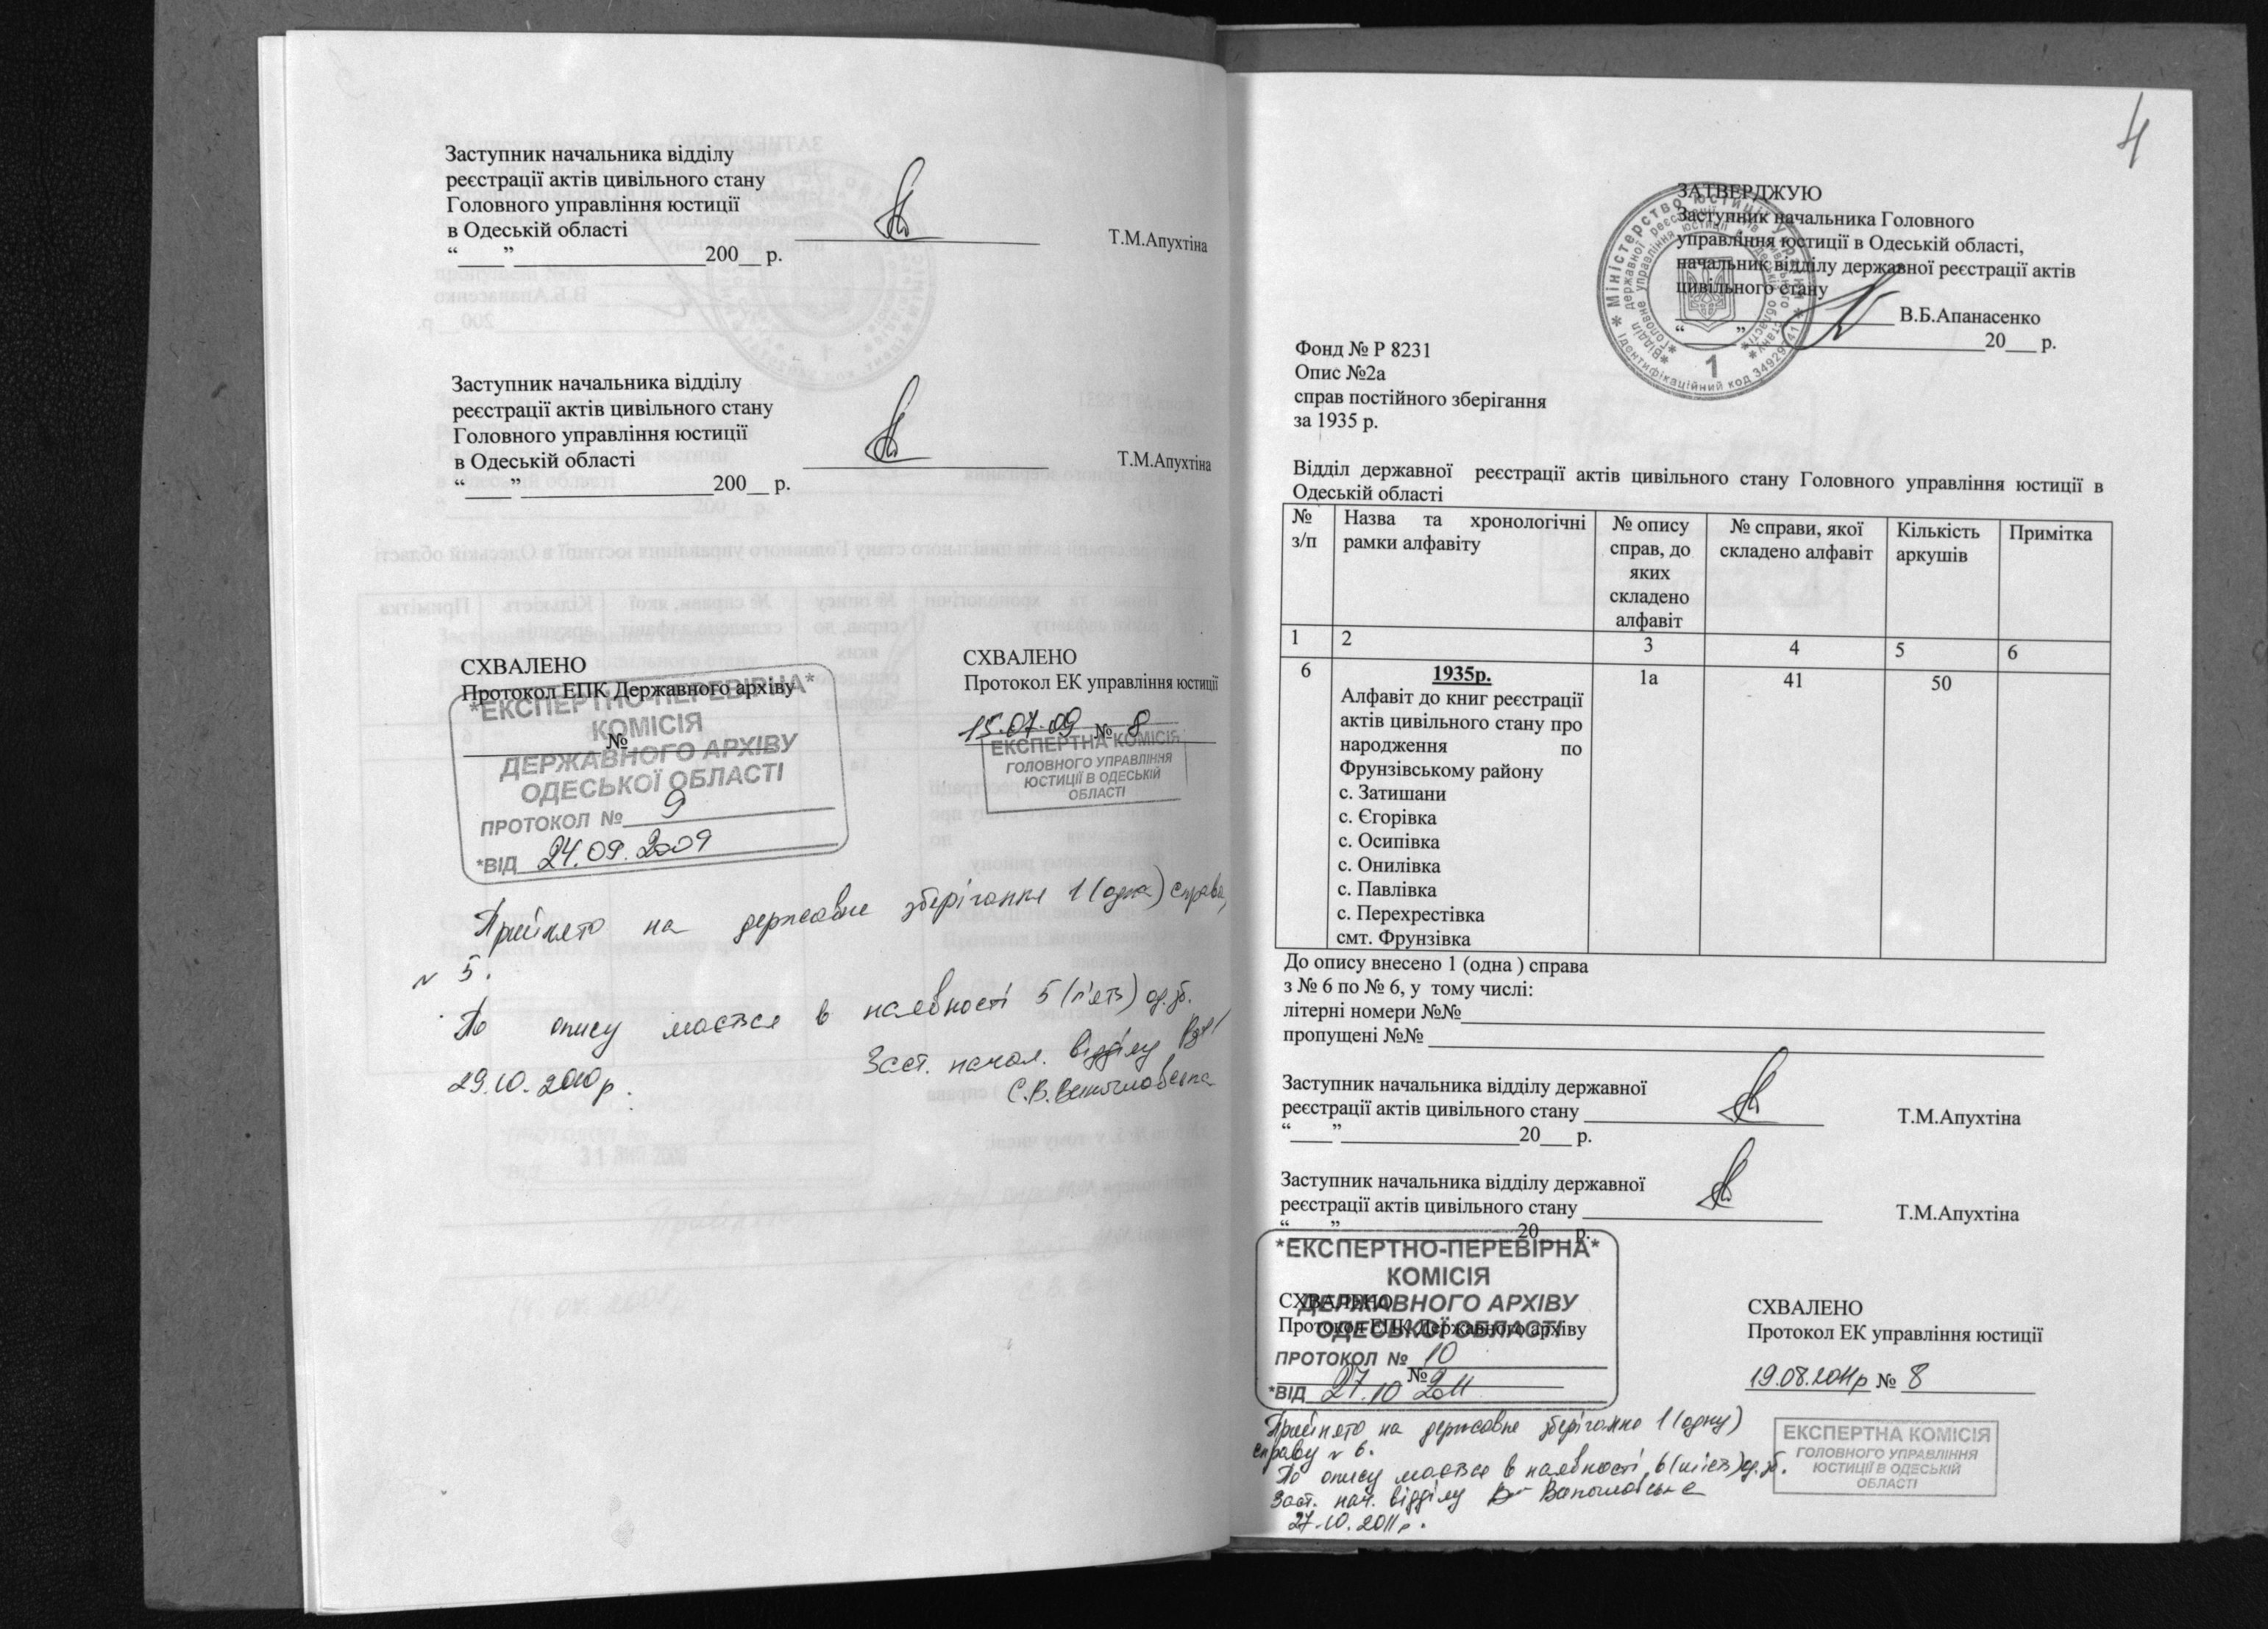 Заступник начальника відділу
реєстрації актів цивільного стану
Головного управління юстиції
в Одеській області ____________________ Т.М.Апухтіна
“____”__________________200__ р.
Заступник начальника відділу
реєстрації актів цивільного стану
Головного управління юстиції
в Одеській області ____________________ Т.М.Апухтіна
“____”__________________200__ р.
СХВАЛЕНО
Протокол ЕПК Державного архіву
____________№____________
*ЕКСПЕРТНО-ПЕРЕВІРНА*
КОМІСІЯ
ДЕРЖАВНОГО АРХІВУ
ОДЕСЬКОЇ ОБЛАСТІ
ПРОТОКОЛ № 9
*ВІД 24.09.2009
СХВАЛЕНО
Протокол ЕК управління юстиції
15.07.09 № 8
ЕКСПЕРТНА КОМІСІЯ
ГОЛОВНОГО УПРАВЛІННЯ
ЮСТИЦІЇ В ОДЕСЬКІЙ
ОБЛАСТІ
Прийнято на державне зберігання 1 (одна) справа,
№ 5.
По опису мається в наявності 5 (п'ять) од.зб.
Заст. начал. відділу
29.10.2010р.
С.В.
4
ЗАТВЕРДЖУЮ
Заступник начальника Головного
управління юстиції в Одеській області,
начальник відділу державної реєстрації актів
цивільного стану
____________________ В.Б.Апанасенко
“_____”______________________20___ р.
Міністерство юстиції України * Ідентифікаційний код 34929741 *
Відділ державної реєстрації актів цивільного стану
Головне управління юстиції в Одеській області
1
Фонд № Р 8231
Опис №2а
справ постійного зберігання
за 1935 р.
Відділ державної реєстрації актів цивільного стану Головного управління юстиції в
Одеській області
№ з/п | Назва та хронологічні рамки алфавіту | № опису справ, до яких складено алфавіт | № справи, якої складено алфавіт | Кількість аркушів | Примітка
1 | 2 | 3 | 4 | 5 | 6
6 | 1935р. | 1а | 41 | 50
Алфавіт до книг реєстрації
актів цивільного стану про
народження по
Фрунзівському району
с. Затишани
с. Єгорівка
с. Осипівка
с. Онилівка
с. Павлівка
с. Перехрестівка
смт. Фрунзівка
До опису внесено 1 (одна ) справа
з № 6 по № 6, у тому числі:
літерні номери №№____________________
пропущені №№ ____________________
Заступник начальника відділу державної
реєстрації актів цивільного стану ____________________ Т.М.Апухтіна
“____”_________________20___ р.
Заступник начальника відділу державної
реєстрації актів цивільного стану ____________________ Т.М.Апухтіна
“____”_________________20___ р.
*ЕКСПЕРТНО-ПЕРЕВІРНА*
КОМІСІЯ
ДЕРЖАВНОГО АРХІВУ
ОДЕСЬКОЇ ОБЛАСТІ
ПРОТОКОЛ № 10
*ВІД 27.10 2011
СХВАЛЕНО
Протокол ЕПК Державного архіву
____________№____________
СХВАЛЕНО
Протокол ЕК управління юстиції
19.08.2011р № 8
ЕКСПЕРТНА КОМІСІЯ
ГОЛОВНОГО УПРАВЛІННЯ
ЮСТИЦІЇ В ОДЕСЬКІЙ
ОБЛАСТІ
Прийнято на державне зберігання 1 (одну)
справу № 6.
По опису мається в наявності 6 (шість) од.зб.
Заст. нач. відділу
27.10.2011р.